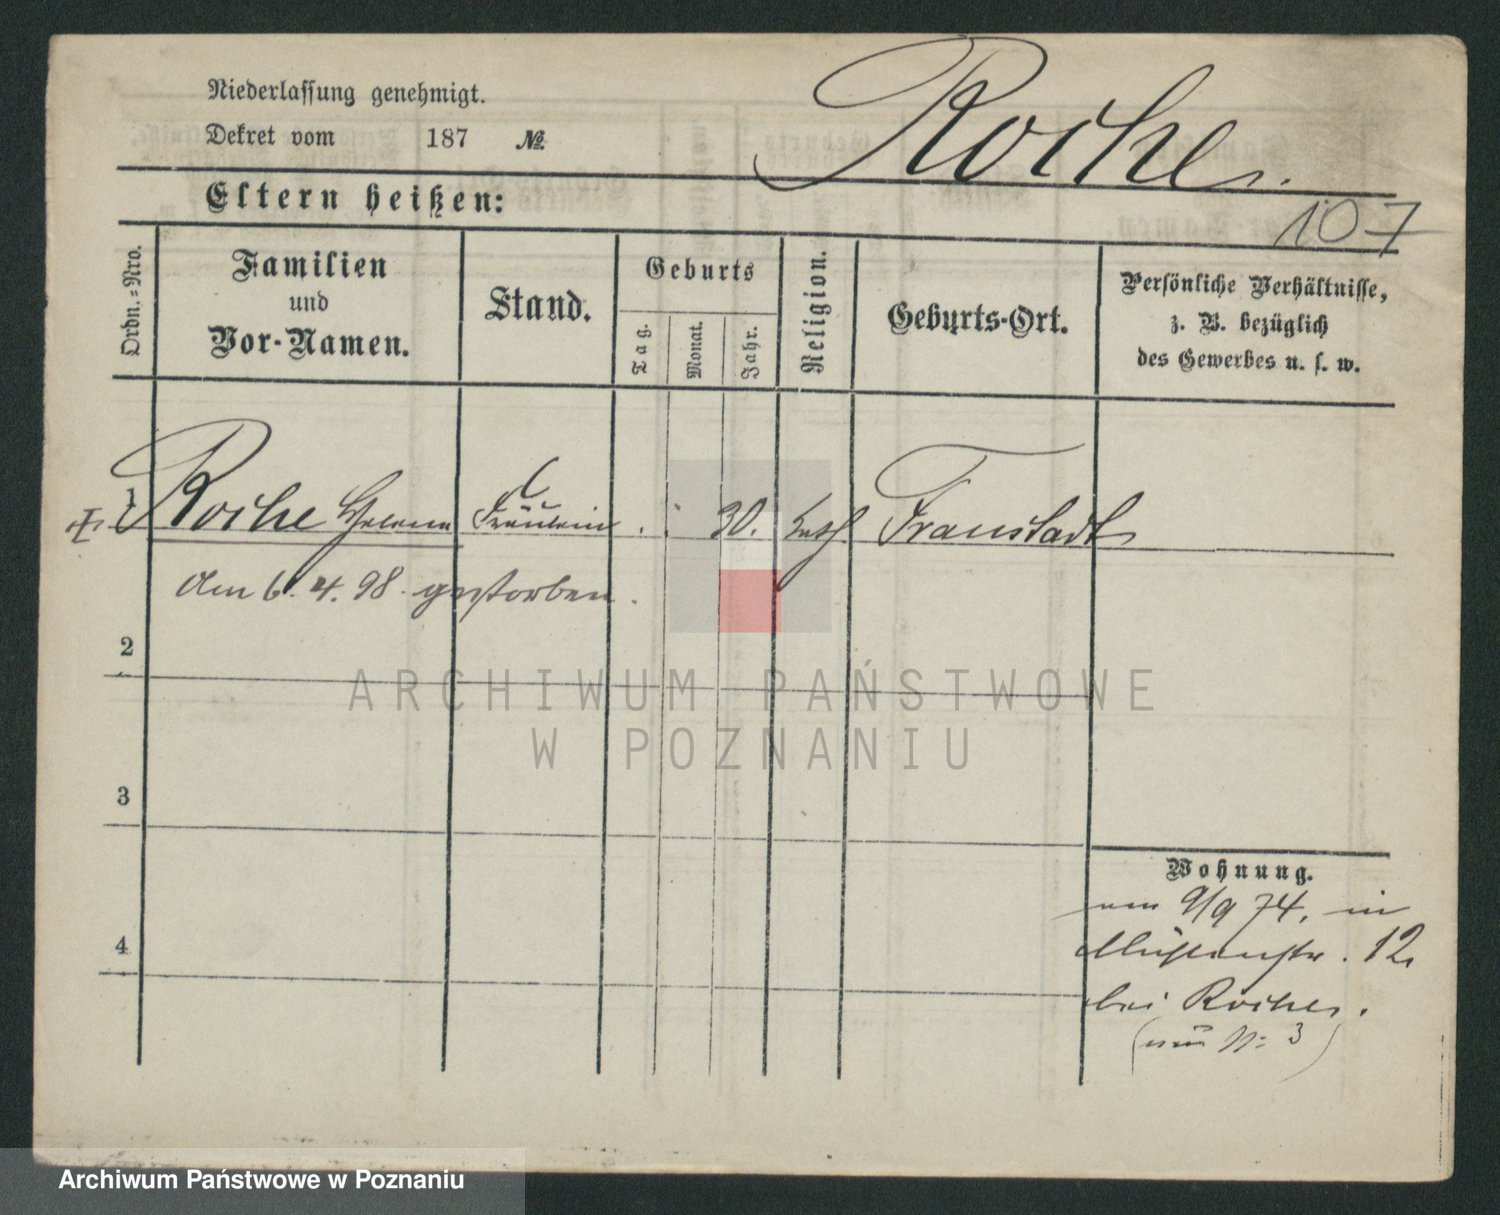 Niederlassung genehmigt.
Dekret vom 187 №
Roche.
Eltern heißen:
107
Ordn.=Nro.
Familien und Vor-Namen.
Stand.
Geburts
Tag. Monat. Jahr.
Religion.
Geburts-Ort.
Persönliche Verhältnisse,
z. B. bezüglich
des Gewerbes u. s. w.
1 Roche Helene Fräulein . . 30. kath Fraustadt
am 6. 4. 98. gestorben.
2
ARCHIWUM PAŃSTWOWE
W POZNANIU
3
4
Wohnung.
9/9 74. in
Mühlenstr. 12.
bei Roche.
(neu N: 3)
Archiwum Państwowe w Poznaniu